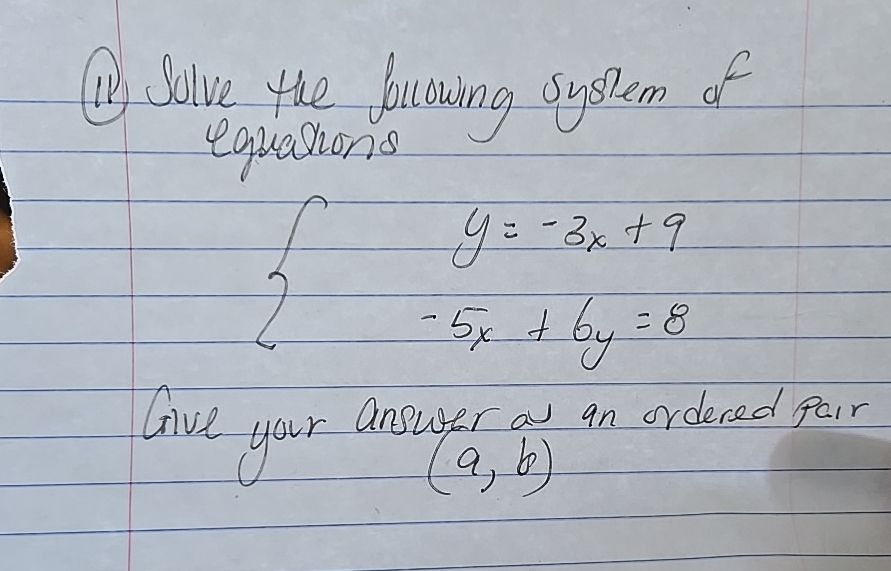 11) Solve the following system of
equations
y = -3x + 9
-5x + 6y = 8
Give your answer as an ordered pair
(a, b)